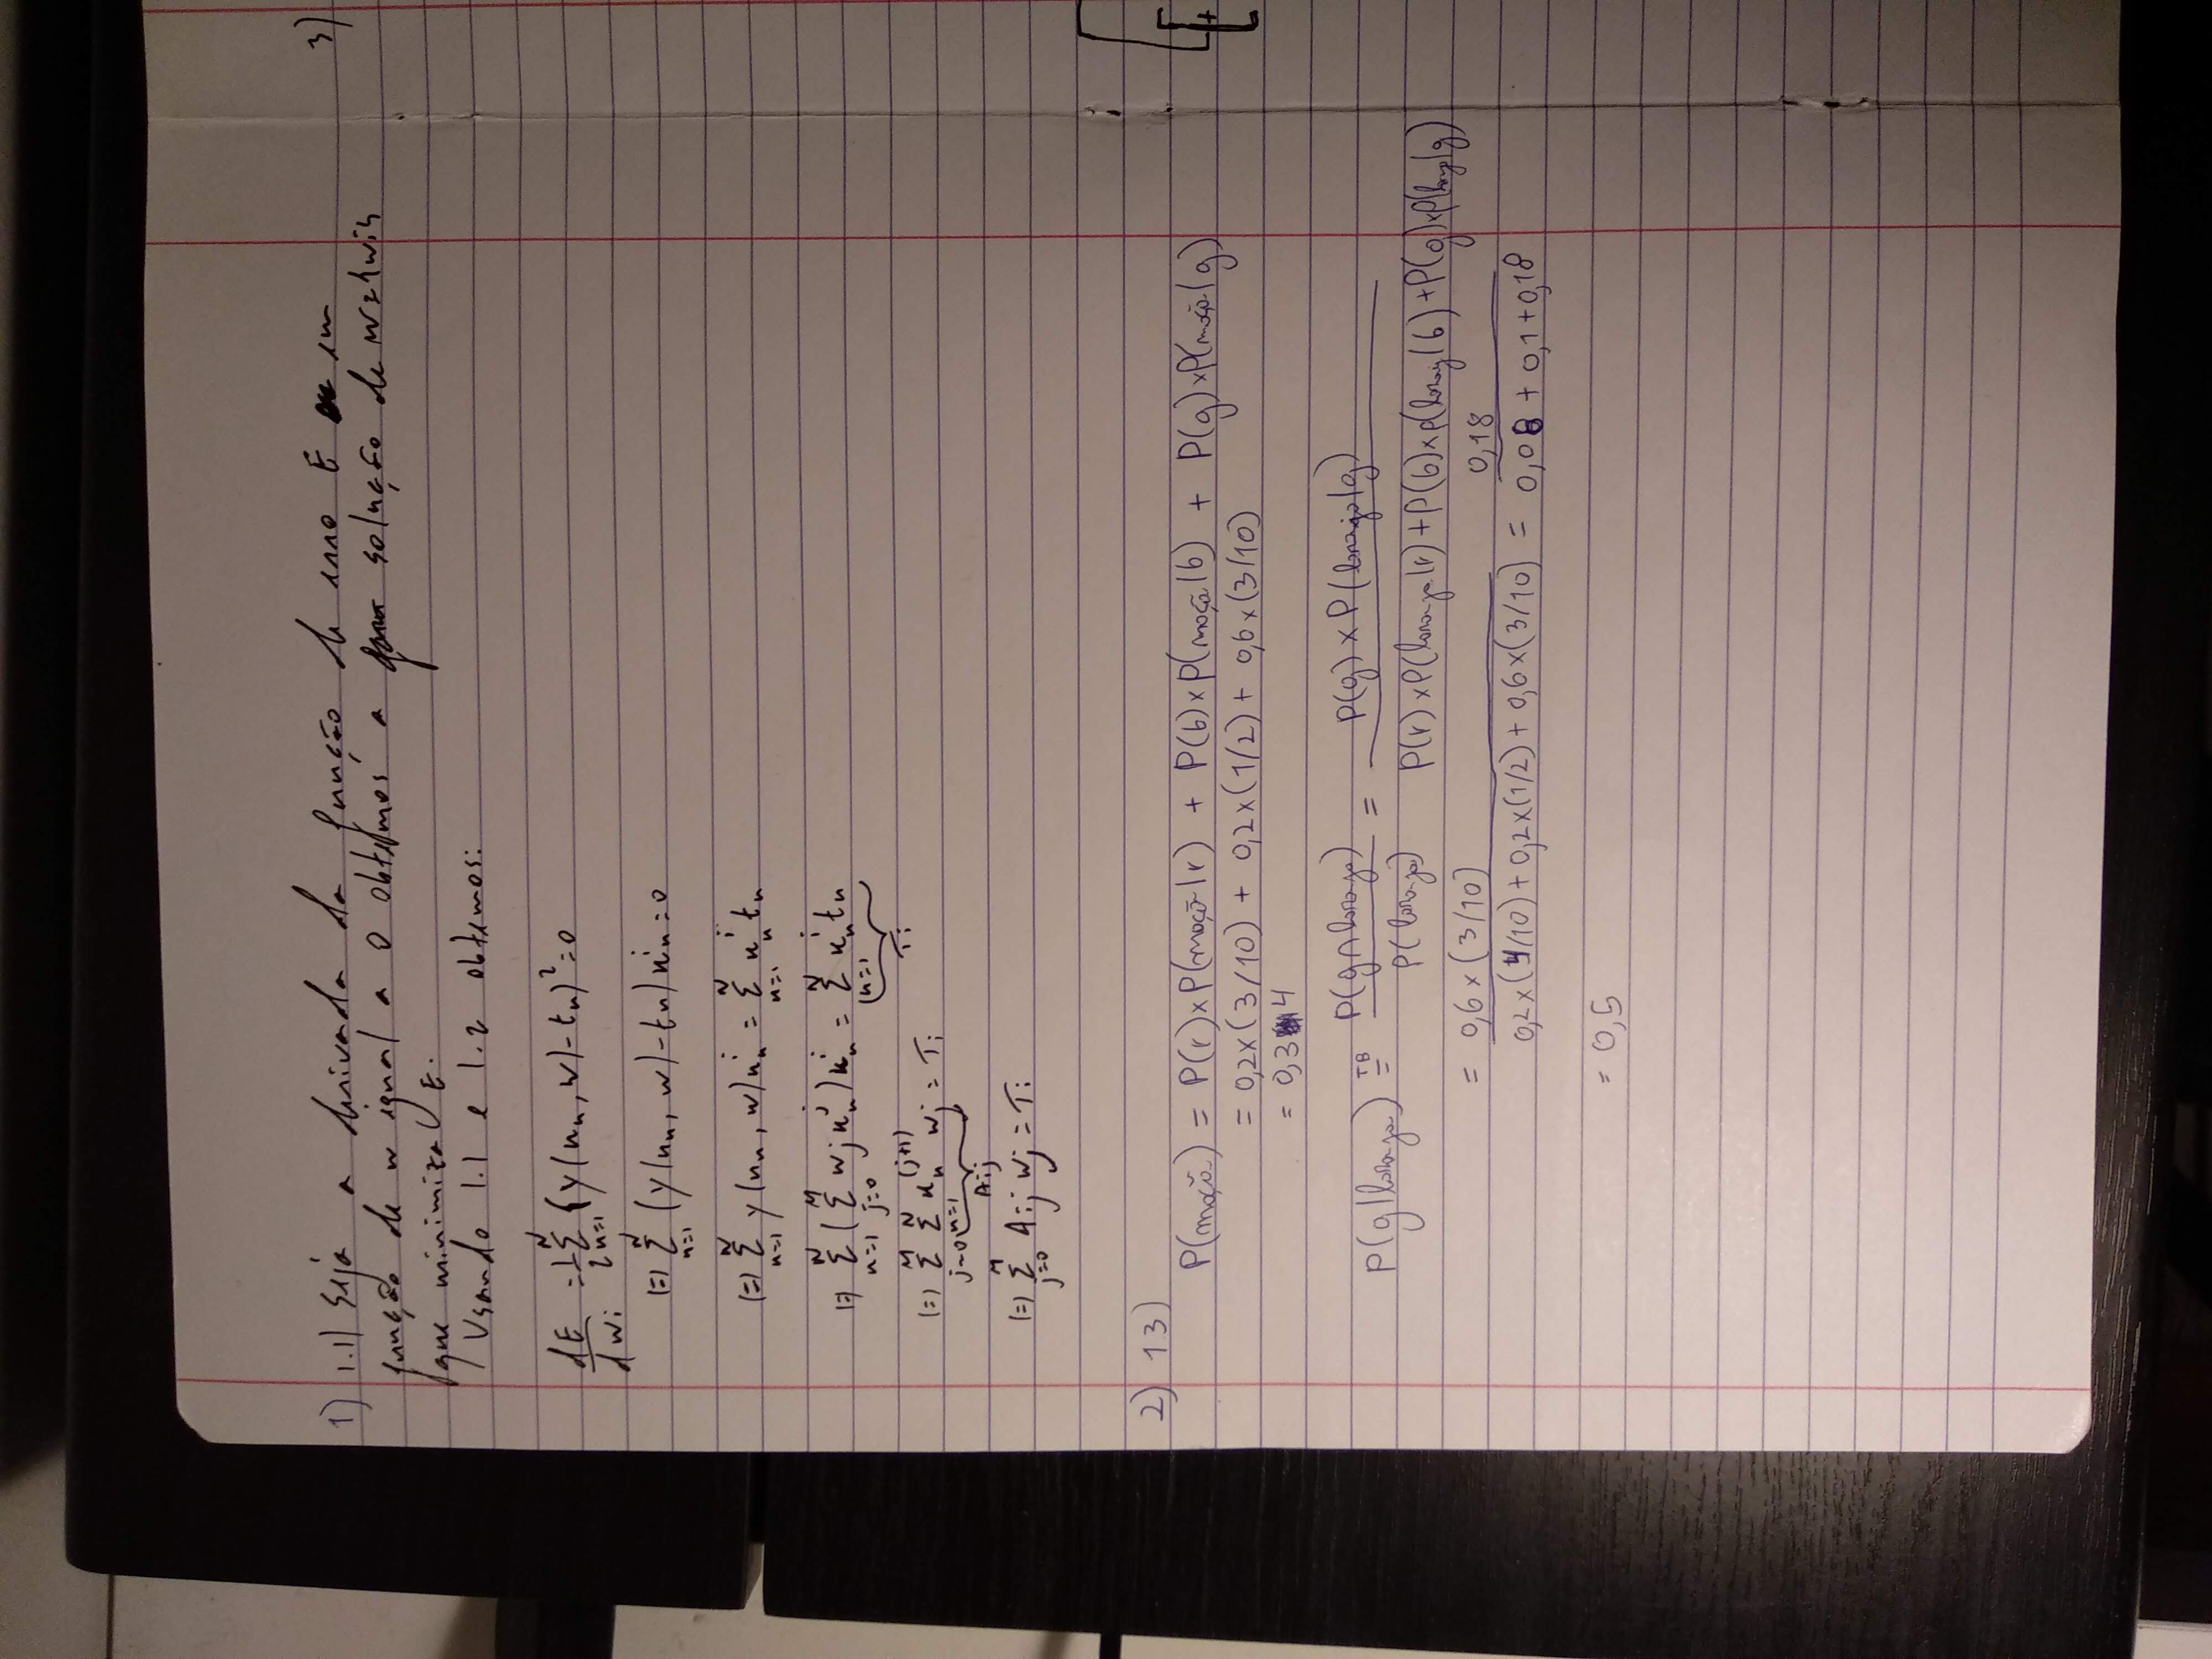 1) 1.1) Seja a derivada da função de erro E em
função de w igual a 0 obtemos a solução de w={wi}
que minimiza E.
Usando 1.1 e 1.2 obtemos:
dE/dwi = 1/2 Σ_{n=1}^{N} {y(xn, w) - tn)² = 0
(=) Σ_{n=1}^{N} (y(xn, w) - tn) x^i_n = 0
(=) Σ_{n=1}^{N} y(xn, w) x^i_n = Σ_{n=1}^{N} x^i_n tn
(=) Σ_{n=1}^{N} (Σ_{j=0}^{M} wj x^j_n) x^i_n = Σ_{n=1}^{N} x^i_n tn
Ti
(=) Σ_{j=0}^{M} Σ_{n=1}^{N} x_n^{(j+i)} wj = Ti
Aij
(=) Σ_{j=0}^{M} Aij wj = Ti
2) 13) P(maçã) = P(r)×P(maçã|r) + P(b)×P(maçã|b) + P(g)×P(maçã|g)
= 0,2×(3/10) + 0,2×(1/2) + 0,6×(3/10)
= 0,34
P(g|laranja) =^{TB} P(g∩laranja) / P(laranja) = P(g)×P(laranja|g) / P(r)×P(laranja|r)+P(b)×P(laranja|b)+P(g)×P(laranja|g)
= 0,6×(3/10) / 0,2×(4/10)+0,2×(1/2)+0,6×(3/10) = 0,18 / 0,08+0,1+0,18
= 0,5
3)